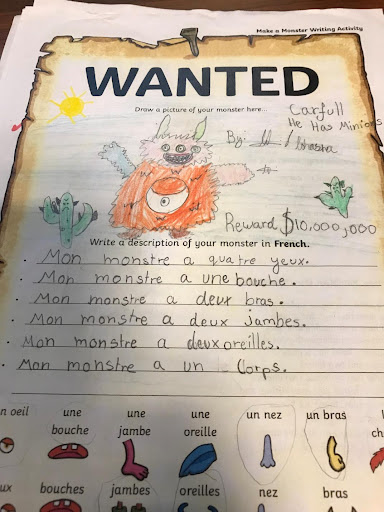 Make a Monster Writing Activity
WANTED
Draw a picture of your monster here...
Carfull
He Has Minions
By:
Reward $10,000,000
Write a description of your monster in French.
Mon monstre a quatre yeux.
Mon monstre a une bouche.
Mon monstre a deux bras.
Mon monstre a deux jambes.
Mon monstre a deux oreilles.
Mon monstre a un Corps.
n oeil une une une un nez un bras
bouche jambe oreille
ux bouches jambes oreilles nez bras